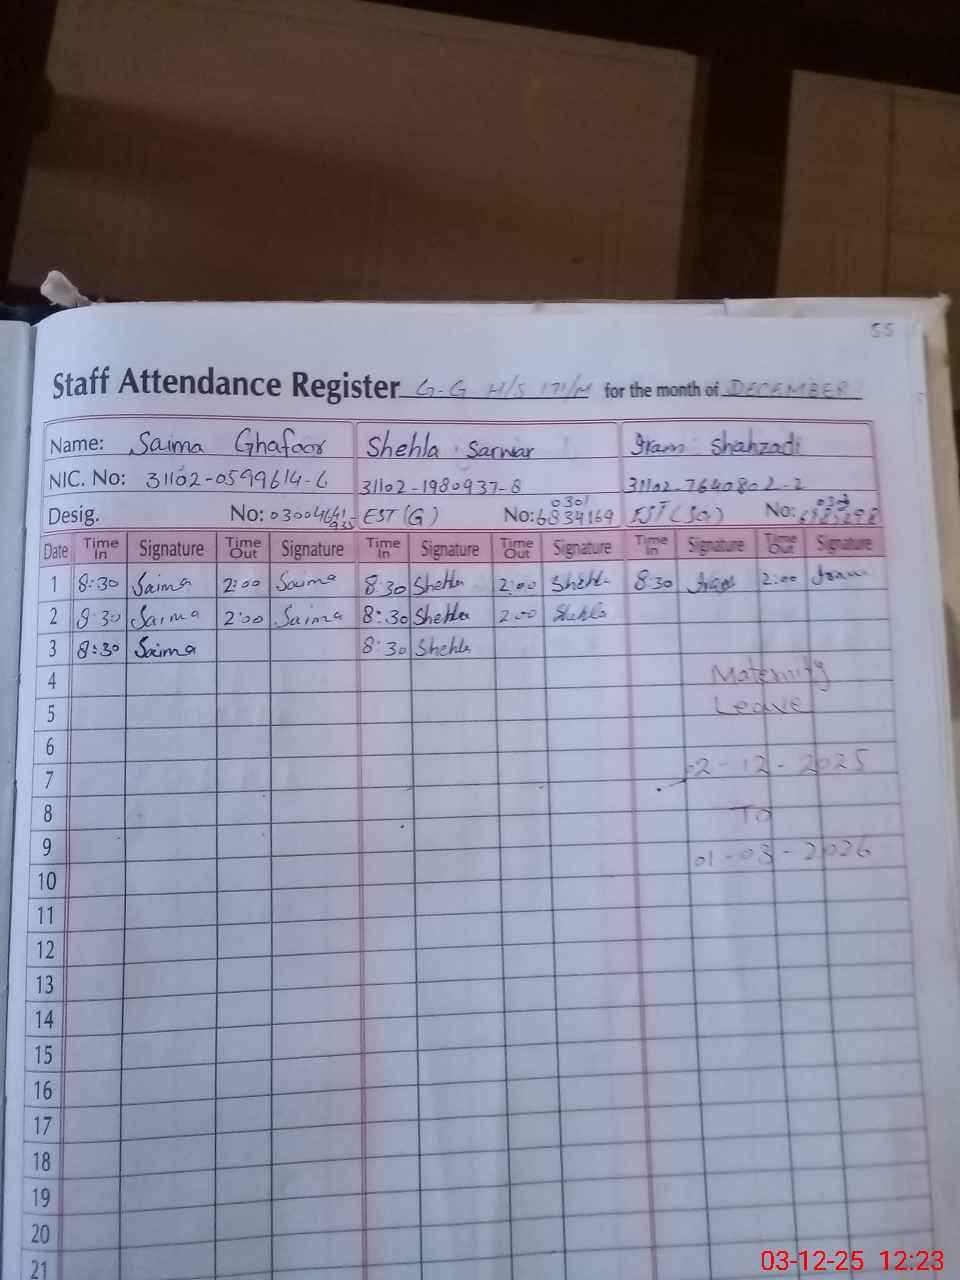 55
Staff Attendance Register G-G H/S 171/M for the month of DECEMBER
Name: Saima Ghafoor Shehla Sarwar Iram Shahzadi
NIC. No: 31102-0599614-6 31102-1980937-8 31102-7640802-2
Desig. No: EST (G) No: 0301 6834169 No:
Date Time In Signature Time Out Signature Time In Signature Time Out Signature Time In Signature Time Out Signature
1 8:30 Saima 2:00 Saima 8:30 Shehla 2:00 Shehla 8:30 Iram 2:00 Iram
2 8:30 Saima 2:00 Saima 8:30 Shehla 2:00 Shehla
3 8:30 Saima 8:30 Shehla
4 Maternity
5 Leave
6
7 02-12-2025
8 To
9 01-03-2026
10
11
12
13
14
15
16
17
18
19
20
21
03-12-25 12:23